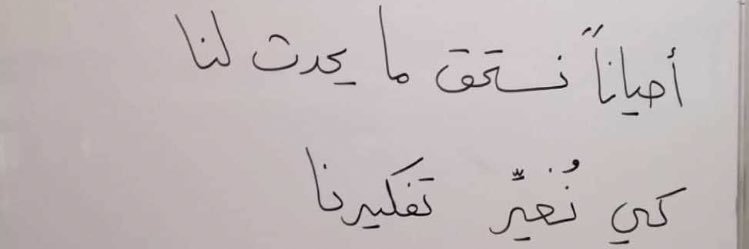 أحياناً نستحق ما يحدث لنا
كي نُغيِّر تفكيرنا